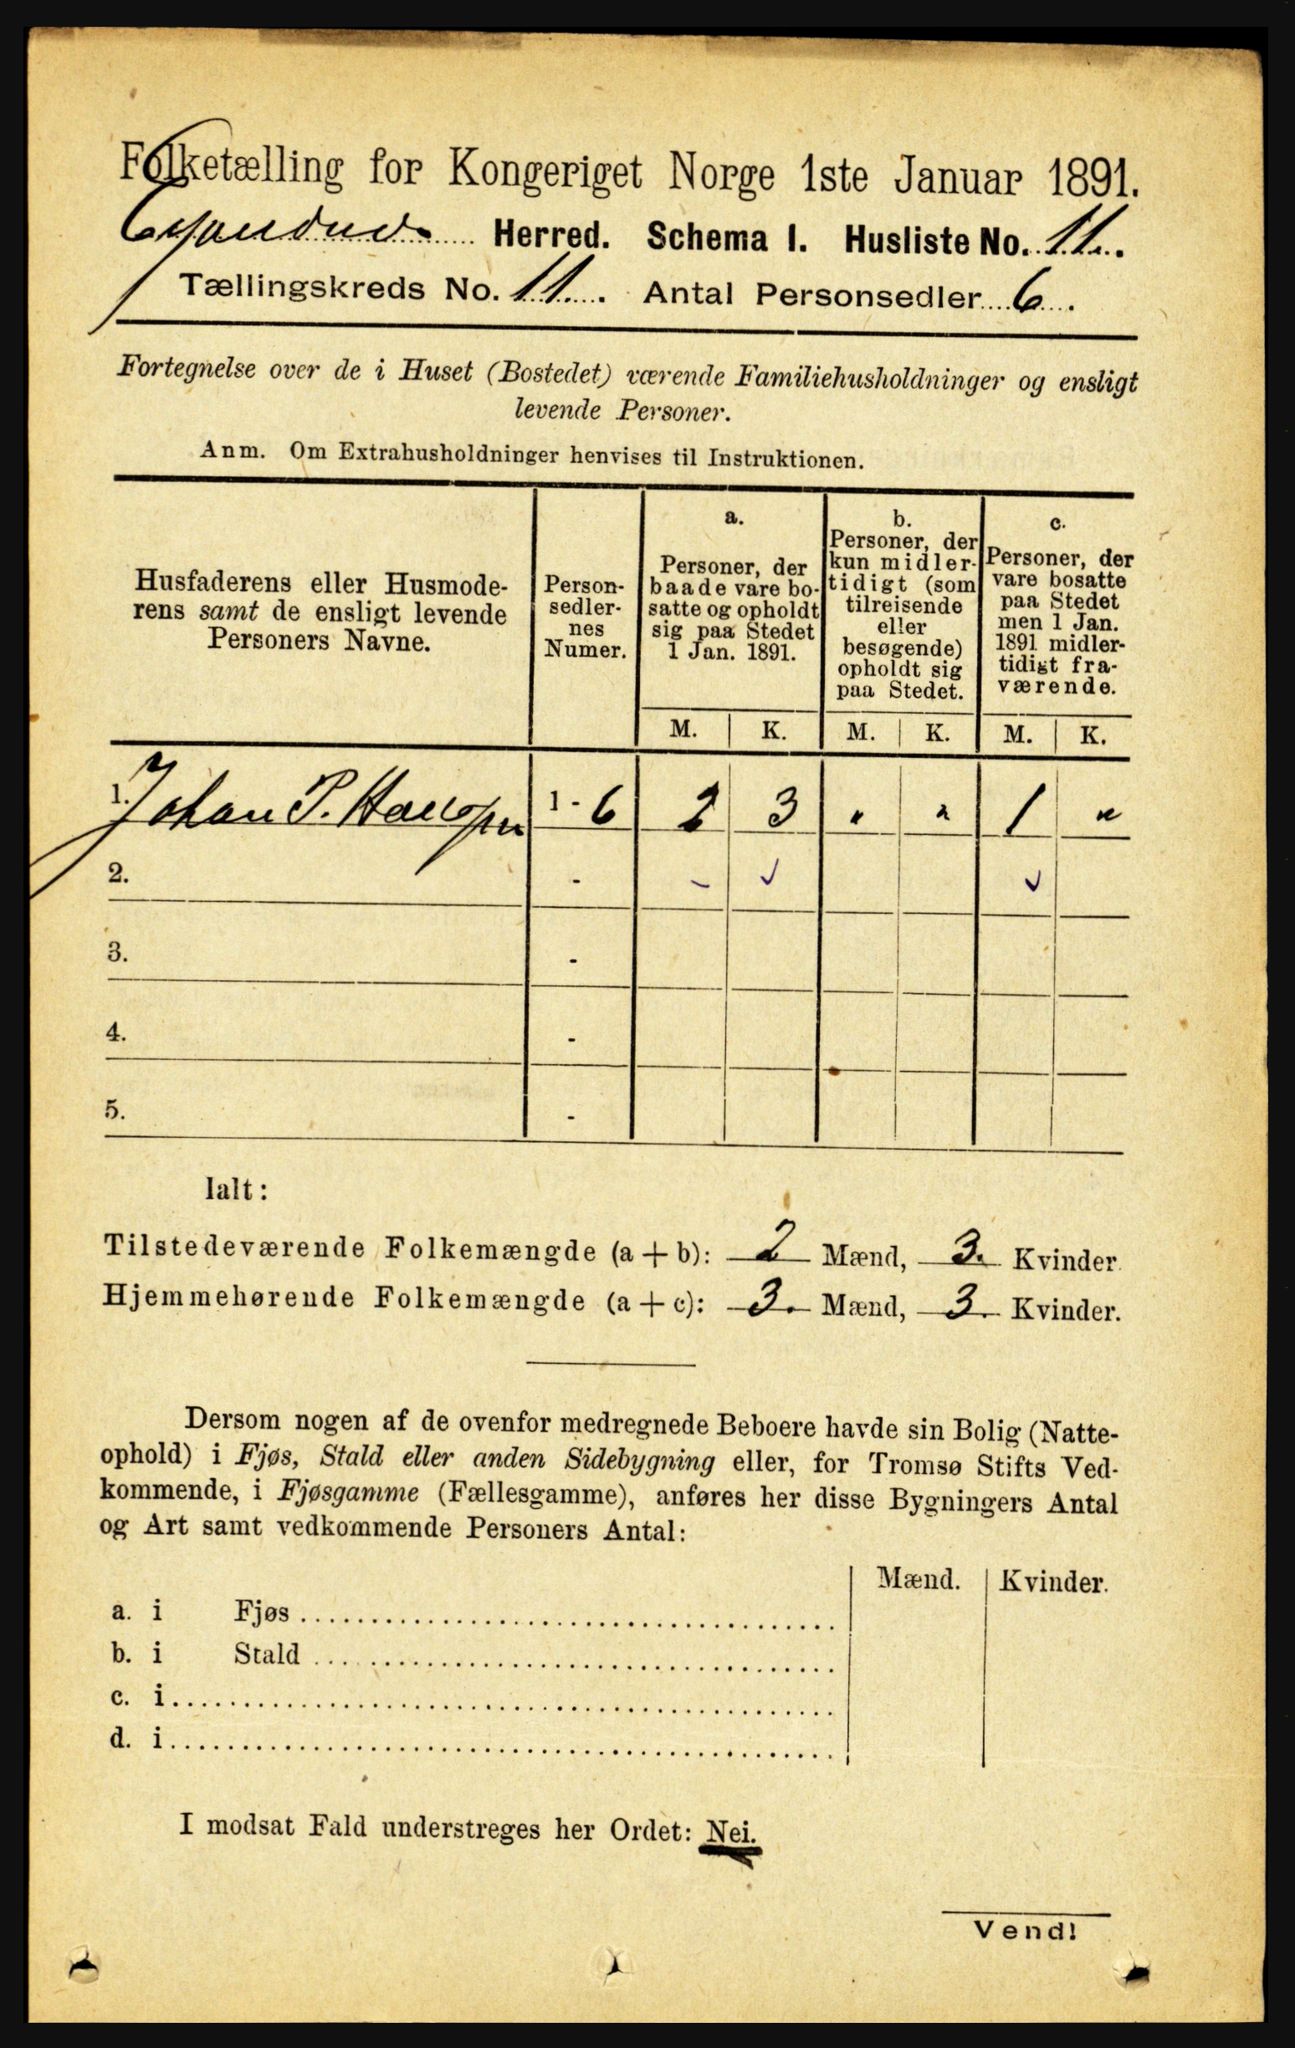 Folketælling for Kongeriget Norge 1ste Januar 1891.
Herred. Schema I. Husliste No. 11.
Tællingskreds No. 11. Antal Personsedler 6.
Fortegnelse over de i Huset (Bostedet) værende Familiehusholdninger og ensligt
levende Personer.
Anm. Om Extrahusholdninger henvises til Instruktionen.
Husfaderens eller Husmode-
rens samt de ensligt levende
Personers Navne.
Person-
sedler-
nes
Numer.
a.
Personer, der
baade vare bo-
satte og opholdt
sig paa Stedet
1 Jan. 1891.
b.
Personer, der
kun midler-
tidigt (som
tilreisende
eller
besøgende)
opholdt sig
paa Stedet.
c.
Personer, der
vare bosatte
paa Stedet
men 1 Jan.
1891 midler-
tidigt fra-
værende.
M. K. M. K. M. K.
1. Johan P. 1 - 6 2 3 " " 1 "
2. -
3. -
4. -
5. -
Ialt:
Tilstedeværende Folkemængde (a + b): 2 Mænd, 3. Kvinder.
Hjemmehørende Folkemængde (a + c): 3. Mænd, 3. Kvinder.
Dersom nogen af de ovenfor medregnede Beboere havde sin Bolig (Natte-
ophold) i Fjøs, Stald eller anden Sidebygning eller, for Tromsø Stifts Ved-
kommende, i Fjøsgamme (Fællesgamme), anføres her disse Bygningers Antal
og Art samt vedkommende Personers Antal:
Mænd. Kvinder.
a. i Fjøs
b. i Stald
c. i
d. i
I modsat Fald understreges her Ordet: Nei.
Vend!